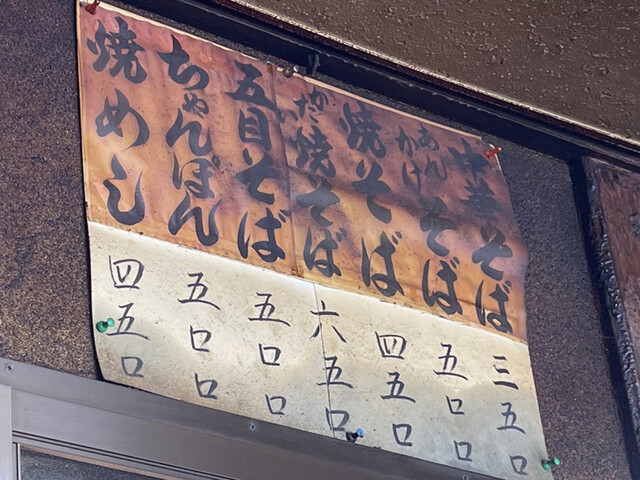 中華そば 三五〇
あんかけそば 五〇〇
焼そば 四五〇
かた焼そば 六五〇
五目そば 五〇〇
ちゃんぽん 五〇〇
焼めし 四五〇